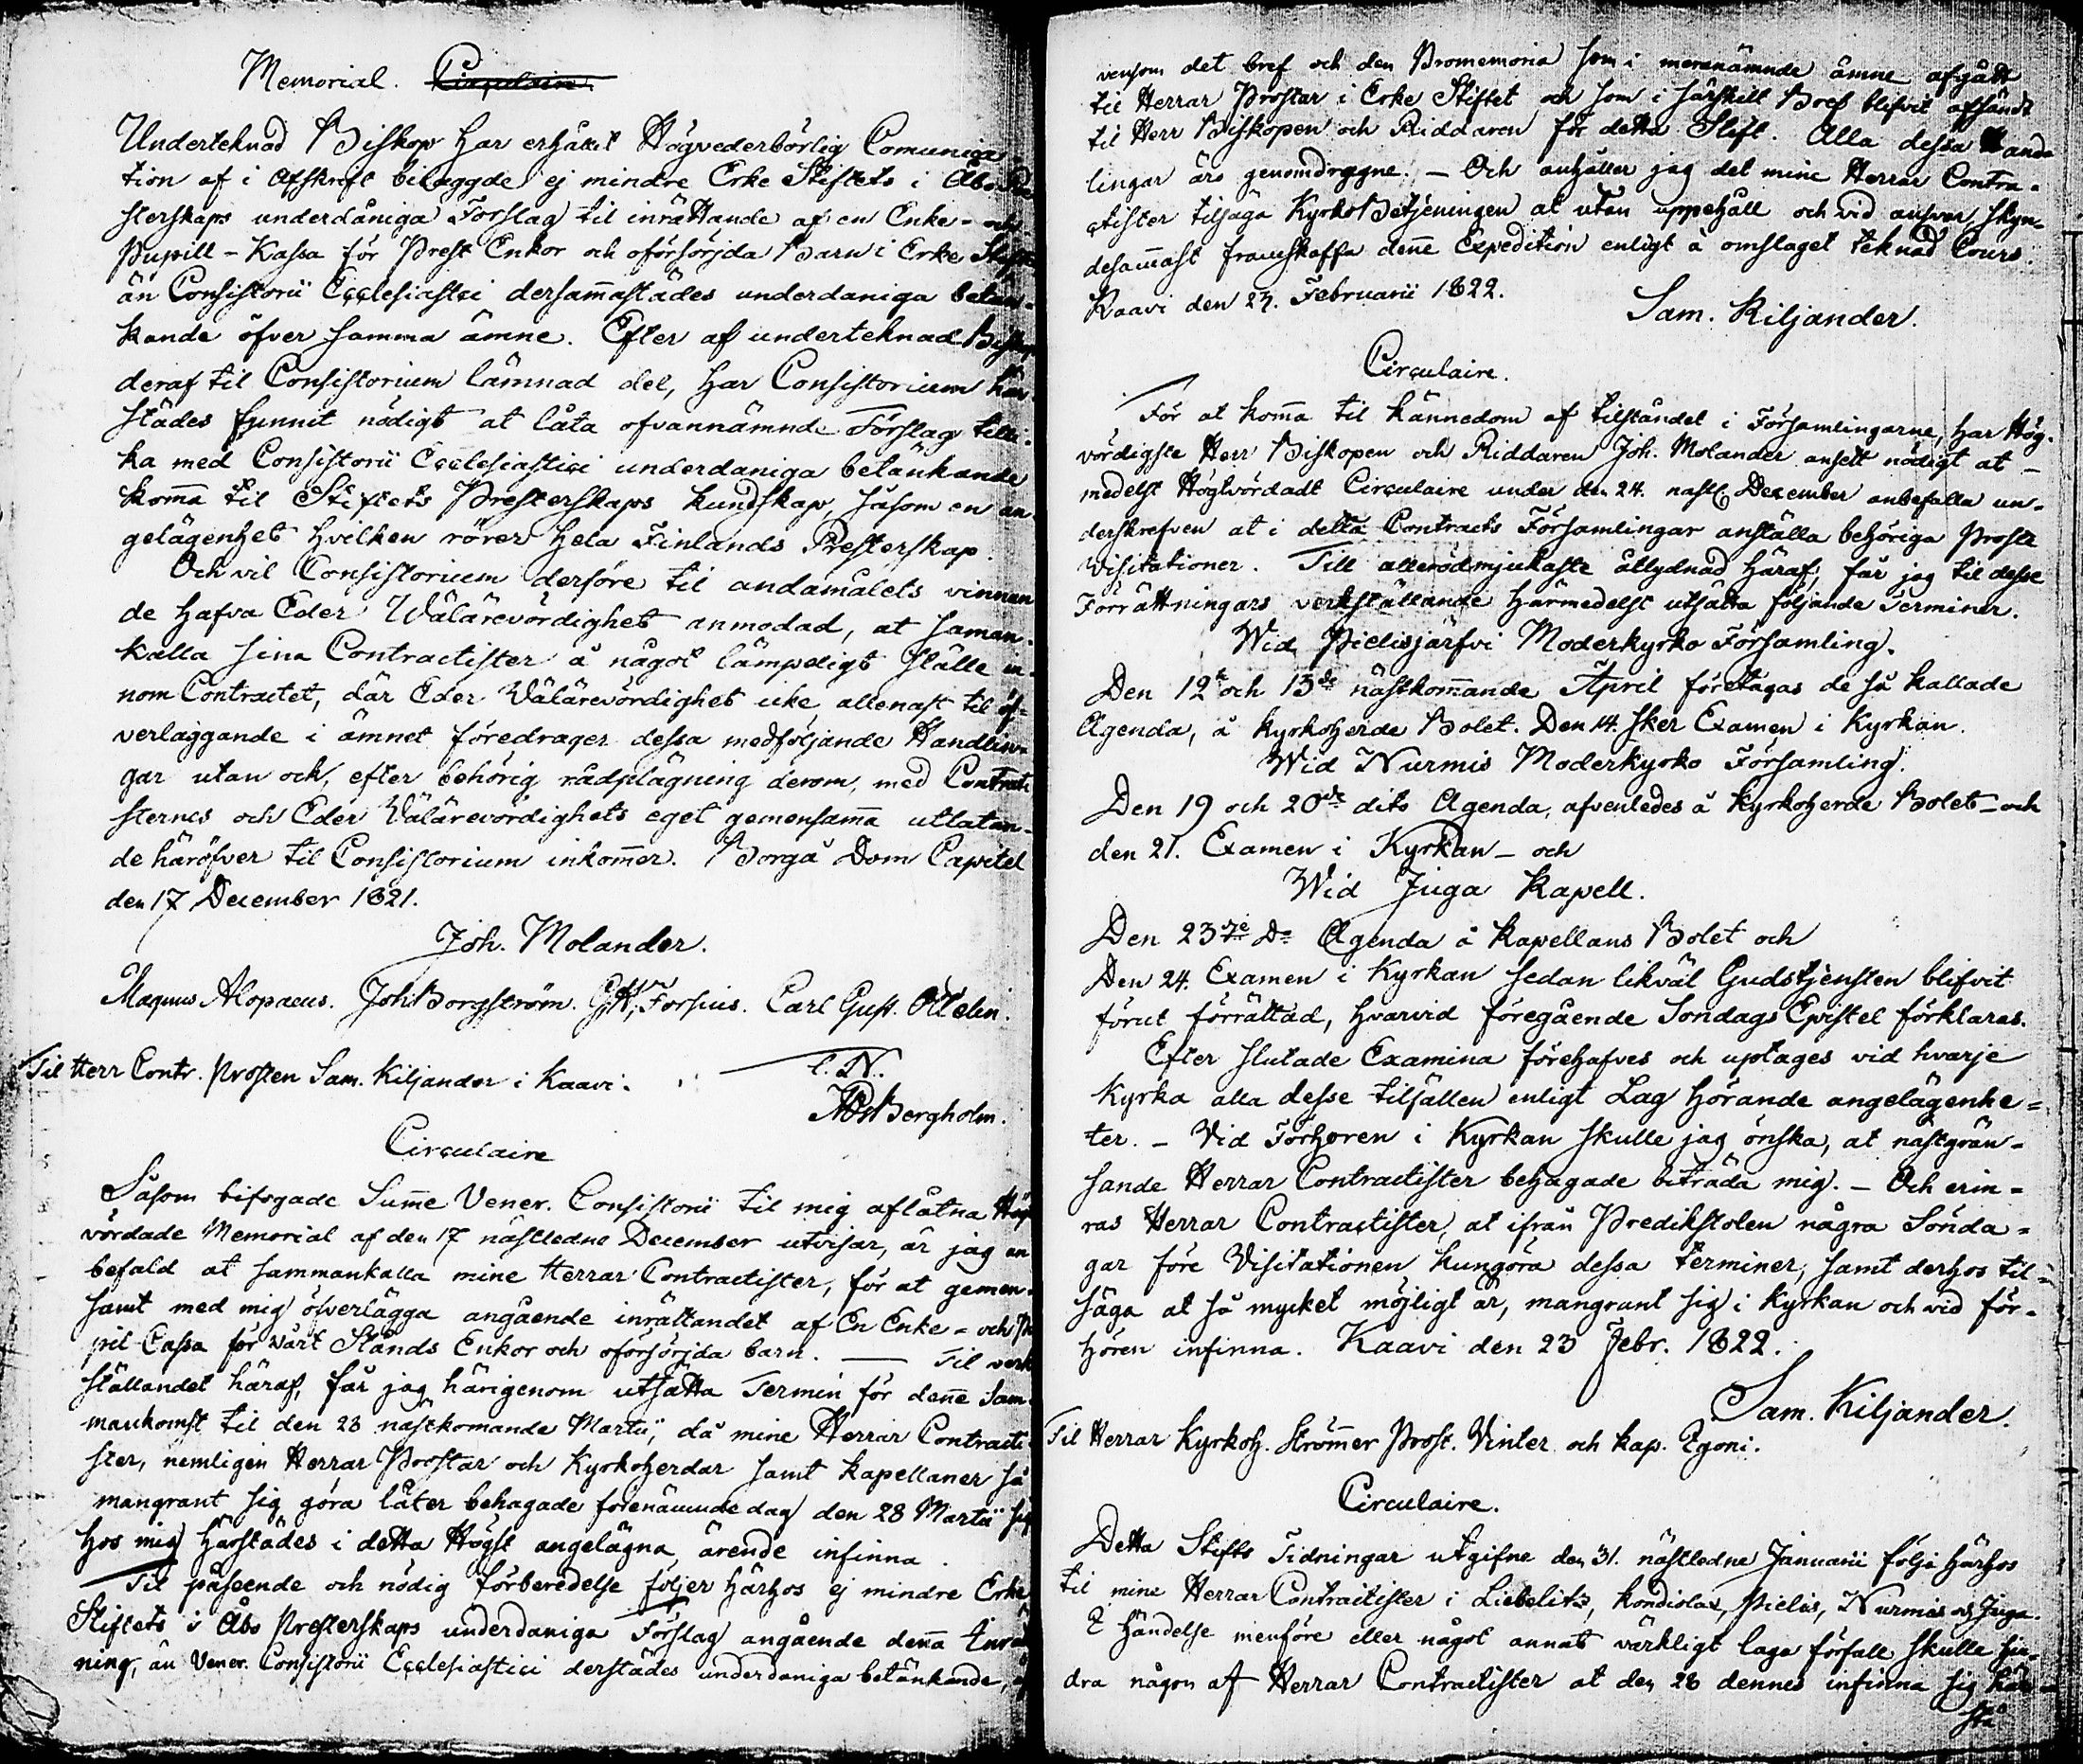 Memorial. Circulaire
Underteknad Biskop har erhållit Högvederbörlig Comunica-
tion af i Afskrift bilaggde ej mindre Erke Stiftets i Åbo
sterskaps underdåniga Förslag til inrättande af en Enke- och
Pupill-Kassa för Prest Enkor och oförsörjda Barn i Erke Stiftet
än Consistorii Ecclesiastici dersam̄astädes underdaniga betän-
kande öfver samma ämne. Efter af underteknad Biskop
deraf til Consistorium lämnad del, har Consistorium här-
städes funnit nödigt at låta ofvannämnde Förslag tilli-
ka med Consistorii Ecclesiastici underdaniga betänkande
kom̄a til Stiftets Presterskaps kundskap, såsom en an-
gelägenhet hvilken rörer hela Finlands Presterskap.
Och vil Consistorium derföre til andamålets vinnan
de hafva Eder Wälärevördighet anmodad, at saman-
kalla sina Contractister å något lämpeligt ställe in-
nom Contractet, där Eder Välärevördighet icke allenast til öf-
verläggande i ämnet föredrager dessa medföljande Handlin-
gar utan och, efter behörig rådplägning derom, med Contracti
sternes och Eder Välärevördighets eget gemensam̄a utlatan-
de häröfver til Consistorium inkom̄er. Borgå Dom Capitel
den 17 December 1821.
Joh. Molander.
Magnus Alopaeus. Joh Borgström. Forsius. Carl Gust. Ottelin.
Til Herr Contr. Prosten Sam. Kiljander i Kaavi.
Bergholm.
Circulaire
Såsom bifogade Sum̄e Vener. Consistorii til mig aflåtna Hög
vördade Memorial af den 17 nästledne December utvisar, är jag an
befald at sammankalla mine Herrar Contractister, för at gemen-
samt med mig öfverlägga angående inrättandet af En Enke- och Pu
pil Cassa för vårt Stånds Enkor och oförsörjda barn. — Til verk
ställandet häraf, får jag härigenom utsätta Termin för den̄e Sam
mankomst til den 28 nästkomande Martii, då mine Herrar Contracti
ster, nemligen Herrar Prostar och Kyrkoherdar samt kapellaner så
mangrant sig göra låter behagade förenämnde dag den 28 Martii sig
hos mig härstädes i detta Högst angelägna ärende infinna.
Til påseende och nödig förberedelse följer härhos ej mindre Erke
Stiftets i Åbo Presterskaps underdaniga Förslag angående den̄a Inrätt
ning, än Vener. Consistorii Ecclesiastici derstädes underdaniga betänkande,
vensom det bref och den Promemoria som i merenämnde ämne afgått
til Herrar Prostar i Erke Stiftet och som i särskilt Bref blifvit afsändt
til Herr Biskopen och Riddaren för detta Stift. Alla dessa Hand
lingar äro genomdragne. — Och anhåller jag det mine Herrar Contra-
ctister tilsäga Kyrko Betjeningen at utan uppehåll och vid answar skyn-
desam̄ast framskaffa den̄e Expedition enligt å omslaget teknad Cours.
Kaavi den 23. Februarii 1822.
Sam. Kiljander.
Circulaire.
För at kom̄a til kännedom af tilståndet i Församlingarne, har Hög-
vördigste Herr Biskopen och Riddaren Joh. Molander ansett nödigt at —
medelst Högtvördadt Circulaire under den 24. nastl. December anbefalla un-
derskrefven at i detta Contracts Församlingar anställa behöriga Prosts
Visitationer. Till allerödmjukaste åtlydnad häraf, får jag til desse
Förrättningars verkställande härmedelst utsätta följande Terminer.
Wid Pielisjärfvi Moderkyrko Församling.
Den 12te och 13de nästkom̄ande April företagas de så kallade
Agenda, å kyrkoherde Bolet. Den 14. sker Examen i Kyrkan.
Wid Nurmis Moderkyrko Församling.
Den 19 och 20de dito Agenda, afvenledes å Kyrkoherde Bolet — och
den 21. Examen i Kyrkan — och
Wid Juga Kapell.
Den 23de Do Agenda å kapellans Bolet och
Den 24. Examen i Kyrkan sedan likväl Gudstjensten blifvit
förut förrättad, hvarvid föregående Söndags Epistel förklaras.
Efter slutade Examina förehafves och uptages vid hvarje
Kyrka alla desse tilfällen enligt Lag hörande angelägenhe=
ter. — Vid Förhören i Kyrkan skulle jag önska, at nästgrän-
sande Herrar Contractister behagade biträda mig. — Och erin=
ras Herrar Contractister, at ifrån Predikstolen några Sönda=
gar före Visitationen kungöra dessa terminer, samt derhos til-
säga at så mycket möjligt är, mangrant sig i Kyrkan och vid för-
hören infinna. Kaavi den 23 Febr. 1822.
Sam. Kiljander.
Til Herrar Kyrkoh. Ström̄er Prost. Vinter och kap. Egoni.
Circulaire.
Detta Stifts Tidningar utgifne den 31. nästledne Januarii följe härhos
til mine Herrar Contractister i Liebelits, Kondiolax, Pielis, Nurmis och Juga.
I händelse menföre eller något annat värkligt laga förfall skulle hin-
dra någon af Herrar Contractister at den 28 dennes infinna sig här-
stä